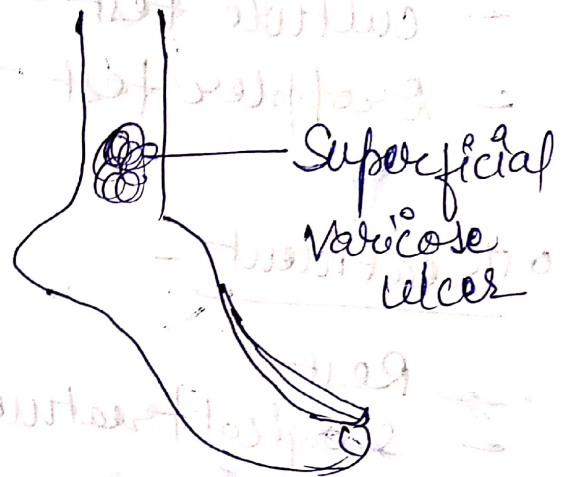 Superficial
Varicose
ulcer